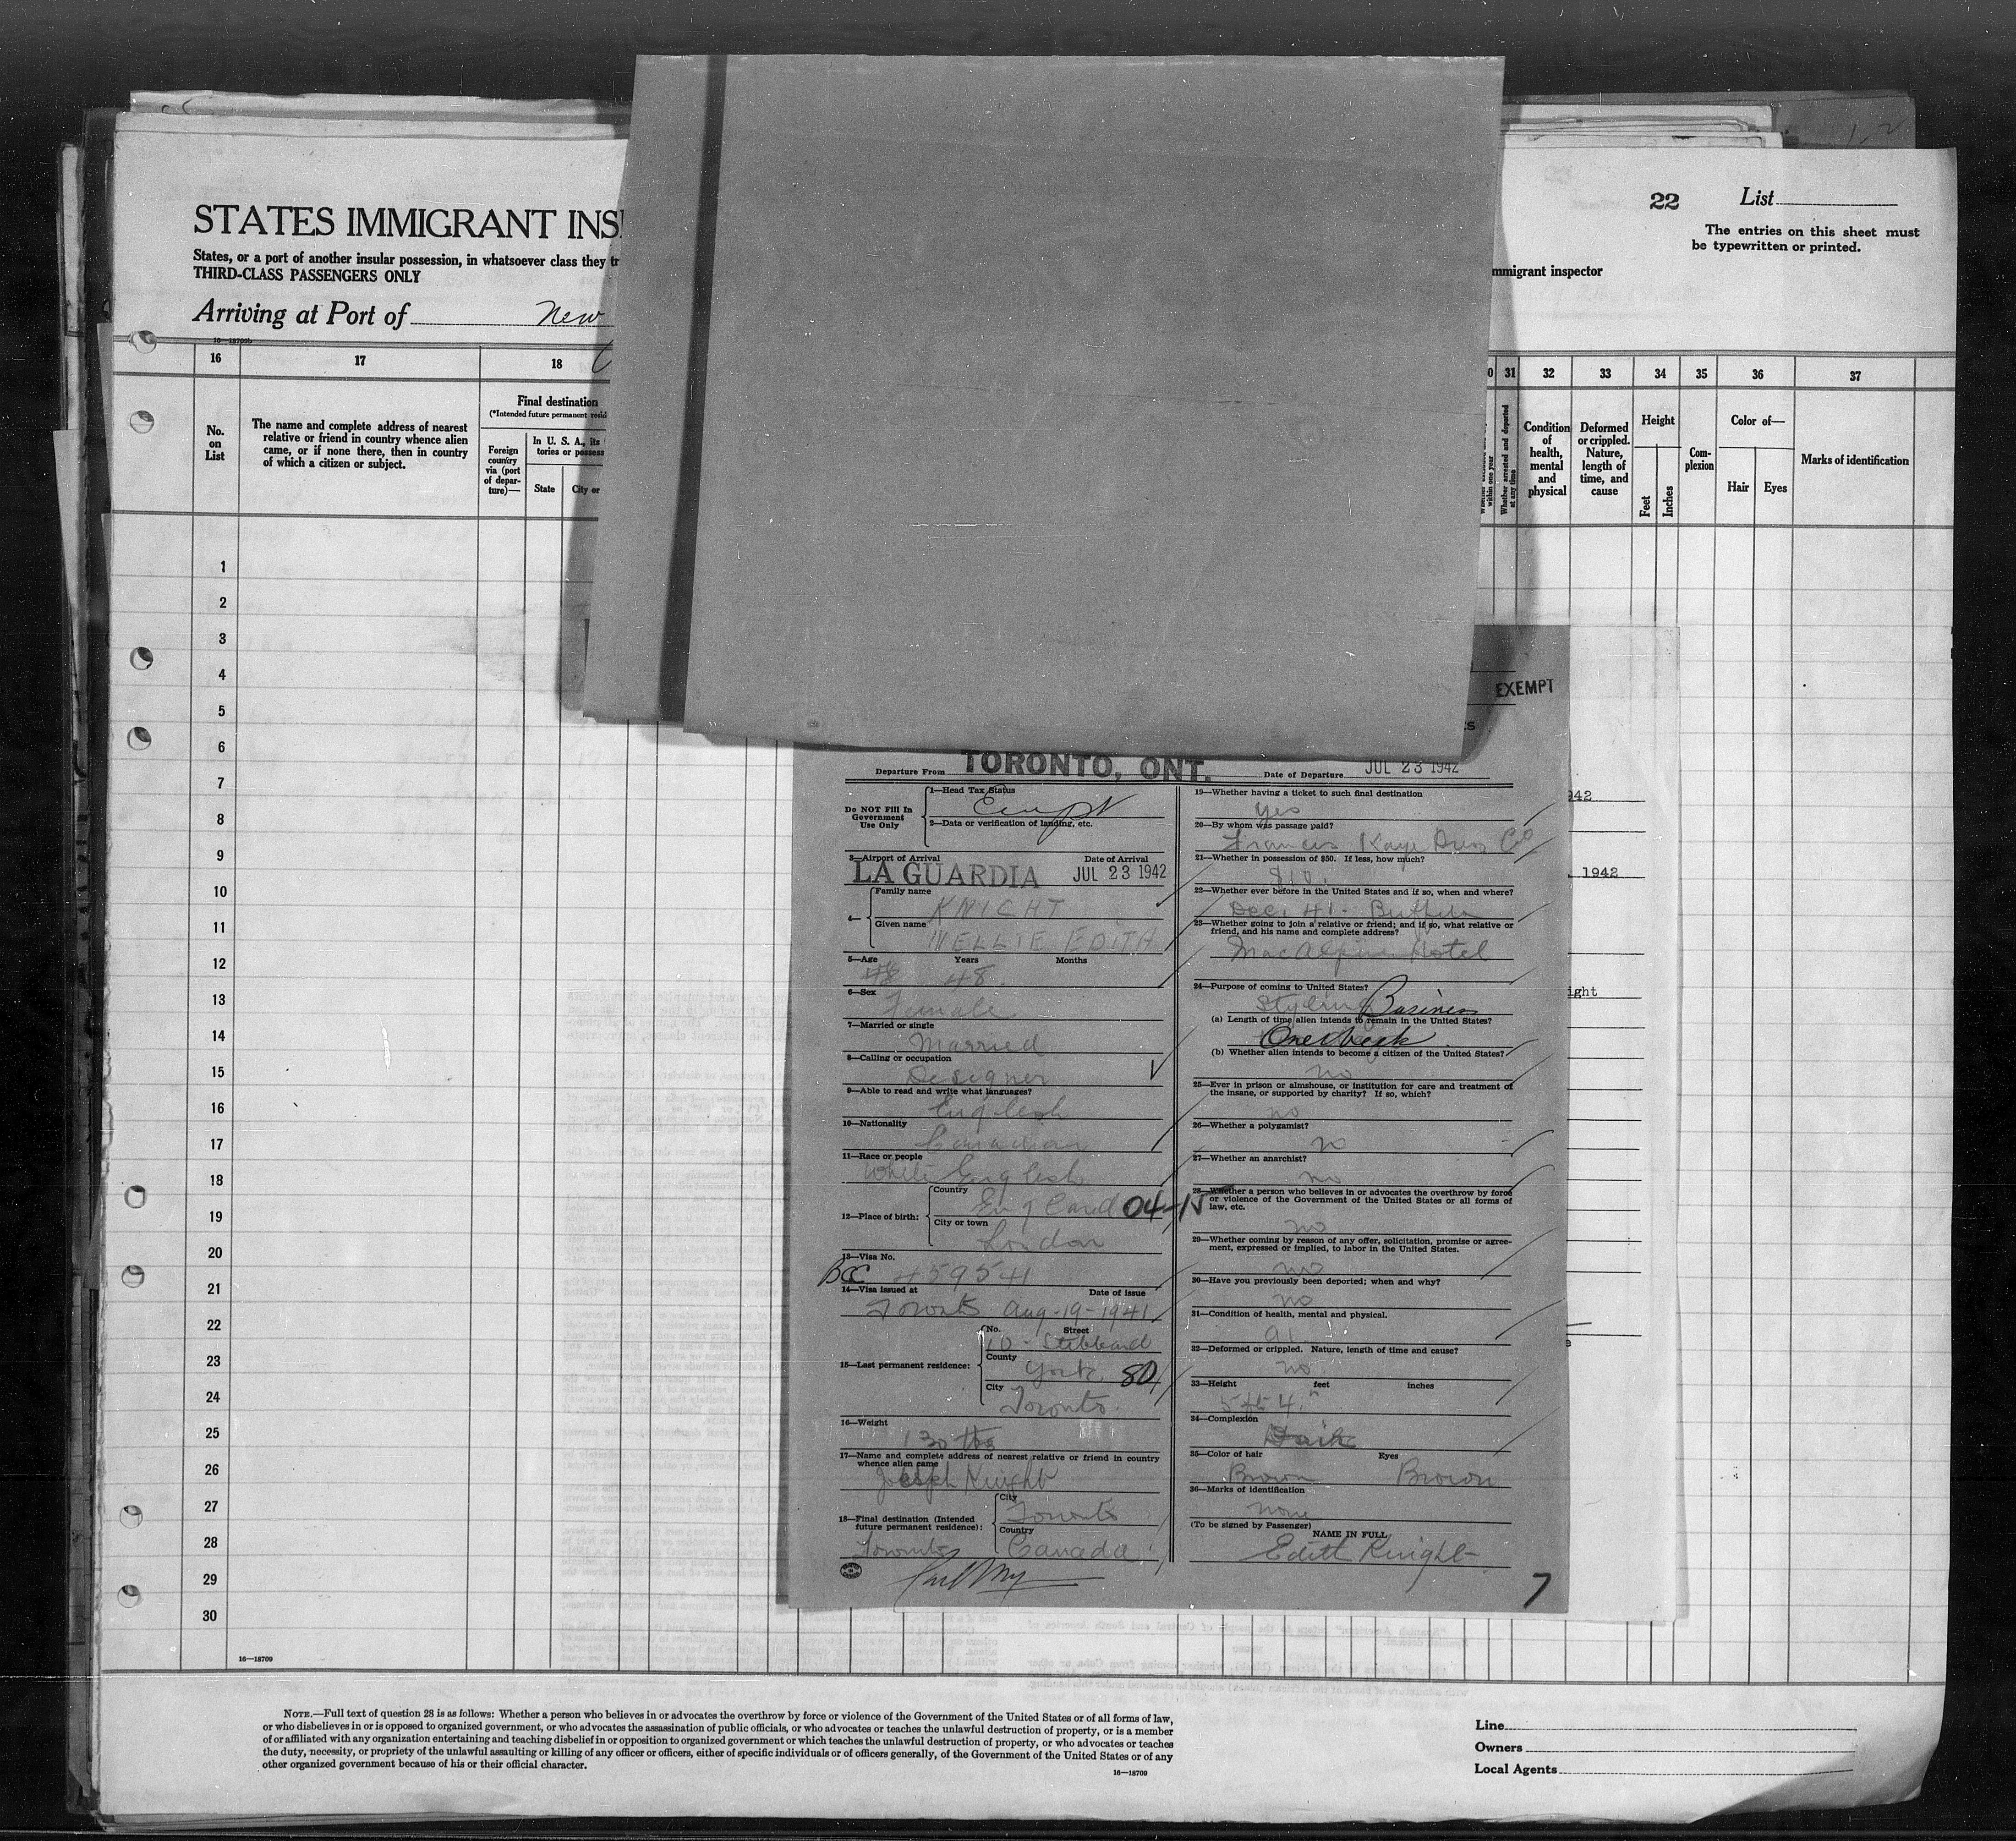 STATES IMMIGRANT INS
States, or a port of another insular possession, in whatsoever class they tr
THIRD-CLASS PASSENGERS ONLY
Arriving at Port of New
22 List
The entries on this sheet must
be typewritten or printed.
mmigrant inspector
16—18709b
16 17 18
No. on List
The name and complete address of nearest
relative or friend in country whence alien
came, or if none there, then in country
of which a citizen or subject.
Final destination
(*Intended future permanent resid
Foreign country via (port of departure)—
In U. S. A., its
tories or possess
State City or
0 31 32 33 34 35 36 37
within one year
Whether arrested and deported at any time
Condition of health, mental and physical
Deformed or crippled. Nature, length of time, and cause
Height
Feet Inches
Com-
plexion
Color of—
Hair Eyes
Marks of identification
1
2
3
4
5
6
7
8
9
10
11
12
13
14
15
16
17
18
19
20
21
22
23
24
25
26
27
28
29
30
16—18709
EXEMPT
Departure From TORONTO, ONT. Date of Departure JUL 23 1942
Do NOT Fill In
Government
Use Only
1—Head Tax Status
2—Data or verification of landing, etc.
3—Airport of Arrival Date of Arrival
LA GUARDIA JUL 23 1942
4—
Family name
KNIGHT
Given name
NELLIE EDITH
5—Age Years Months
48 48
6—Sex
Female
7—Married or single
Married
8—Calling or occupation
Designer
9—Able to read and write what languages?
English
10—Nationality
Canadian
11—Race or people
White English
12—Place of birth:
Country
England 04-15
City or town
London
13—Visa No.
BCC 459541
14—Visa issued at Date of issue
Toronto Aug-19-1941
15—Last permanent residence:
No. Street
10 - Stibbard
County
York 80
City
Toronto.
16—Weight
130 lbs
17—Name and complete address of nearest relative or friend in country
whence alien came
Joseph Knight
18—Final destination (Intended
future permanent residence):
City
Toronto
Country
Toronto Canada
19—Whether having a ticket to such final destination
yes
20—By whom was passage paid?
Francis Kaye Dress Co
21—Whether in possession of $50. If less, how much?
$10.
22—Whether ever before in the United States and if so, when and where?
Dec. 41- Buffalo
23—Whether going to join a relative or friend; and if so, what relative or
friend, and his name and complete address?
MacAlpine Hotel
24—Purpose of coming to United States?
Styling Business
(a) Length of time alien intends to remain in the United States?
One Week
(b) Whether alien intends to become a citizen of the United States?
no
25—Ever in prison or almshouse, or institution for care and treatment of
the insane, or supported by charity? If so, which?
no
26—Whether a polygamist?
no
27—Whether an anarchist?
no
28—Whether a person who believes in or advocates the overthrow by force
or violence of the Government of the United States or all forms of
law, etc.
no
29—Whether coming by reason of any offer, solicitation, promise or agree-
ment, expressed or implied, to labor in the United States.
no
30—Have you previously been deported; when and why?
no
31—Condition of health, mental and physical.
32—Deformed or crippled. Nature, length of time and cause?
no
33—Height feet inches
5 ft 4"
34—Complexion
Dark
35—Color of hair Eyes
Brown Brown
36—Marks of identification
none
(To be signed by Passenger)
NAME IN FULL
Edith Knight
7
942
1942
ight
NOTE.—Full text of question 28 is as follows: Whether a person who believes in or advocates the overthrow by force or violence of the Government of the United States or of all forms of law,
or who disbelieves in or is opposed to organized government, or who advocates the assassination of public officials, or who advocates or teaches the unlawful destruction of property, or is a member
of or affiliated with any organization entertaining and teaching disbelief in or opposition to organized government or which teaches the unlawful destruction of property, or who advocates or teaches
the duty, necessity, or propriety of the unlawful assaulting or killing of any officer or officers, either of specific individuals or of officers generally, of the Government of the United States or of any
other organized government because of his or their official character.
16—18709
Line
Owners
Local Agents